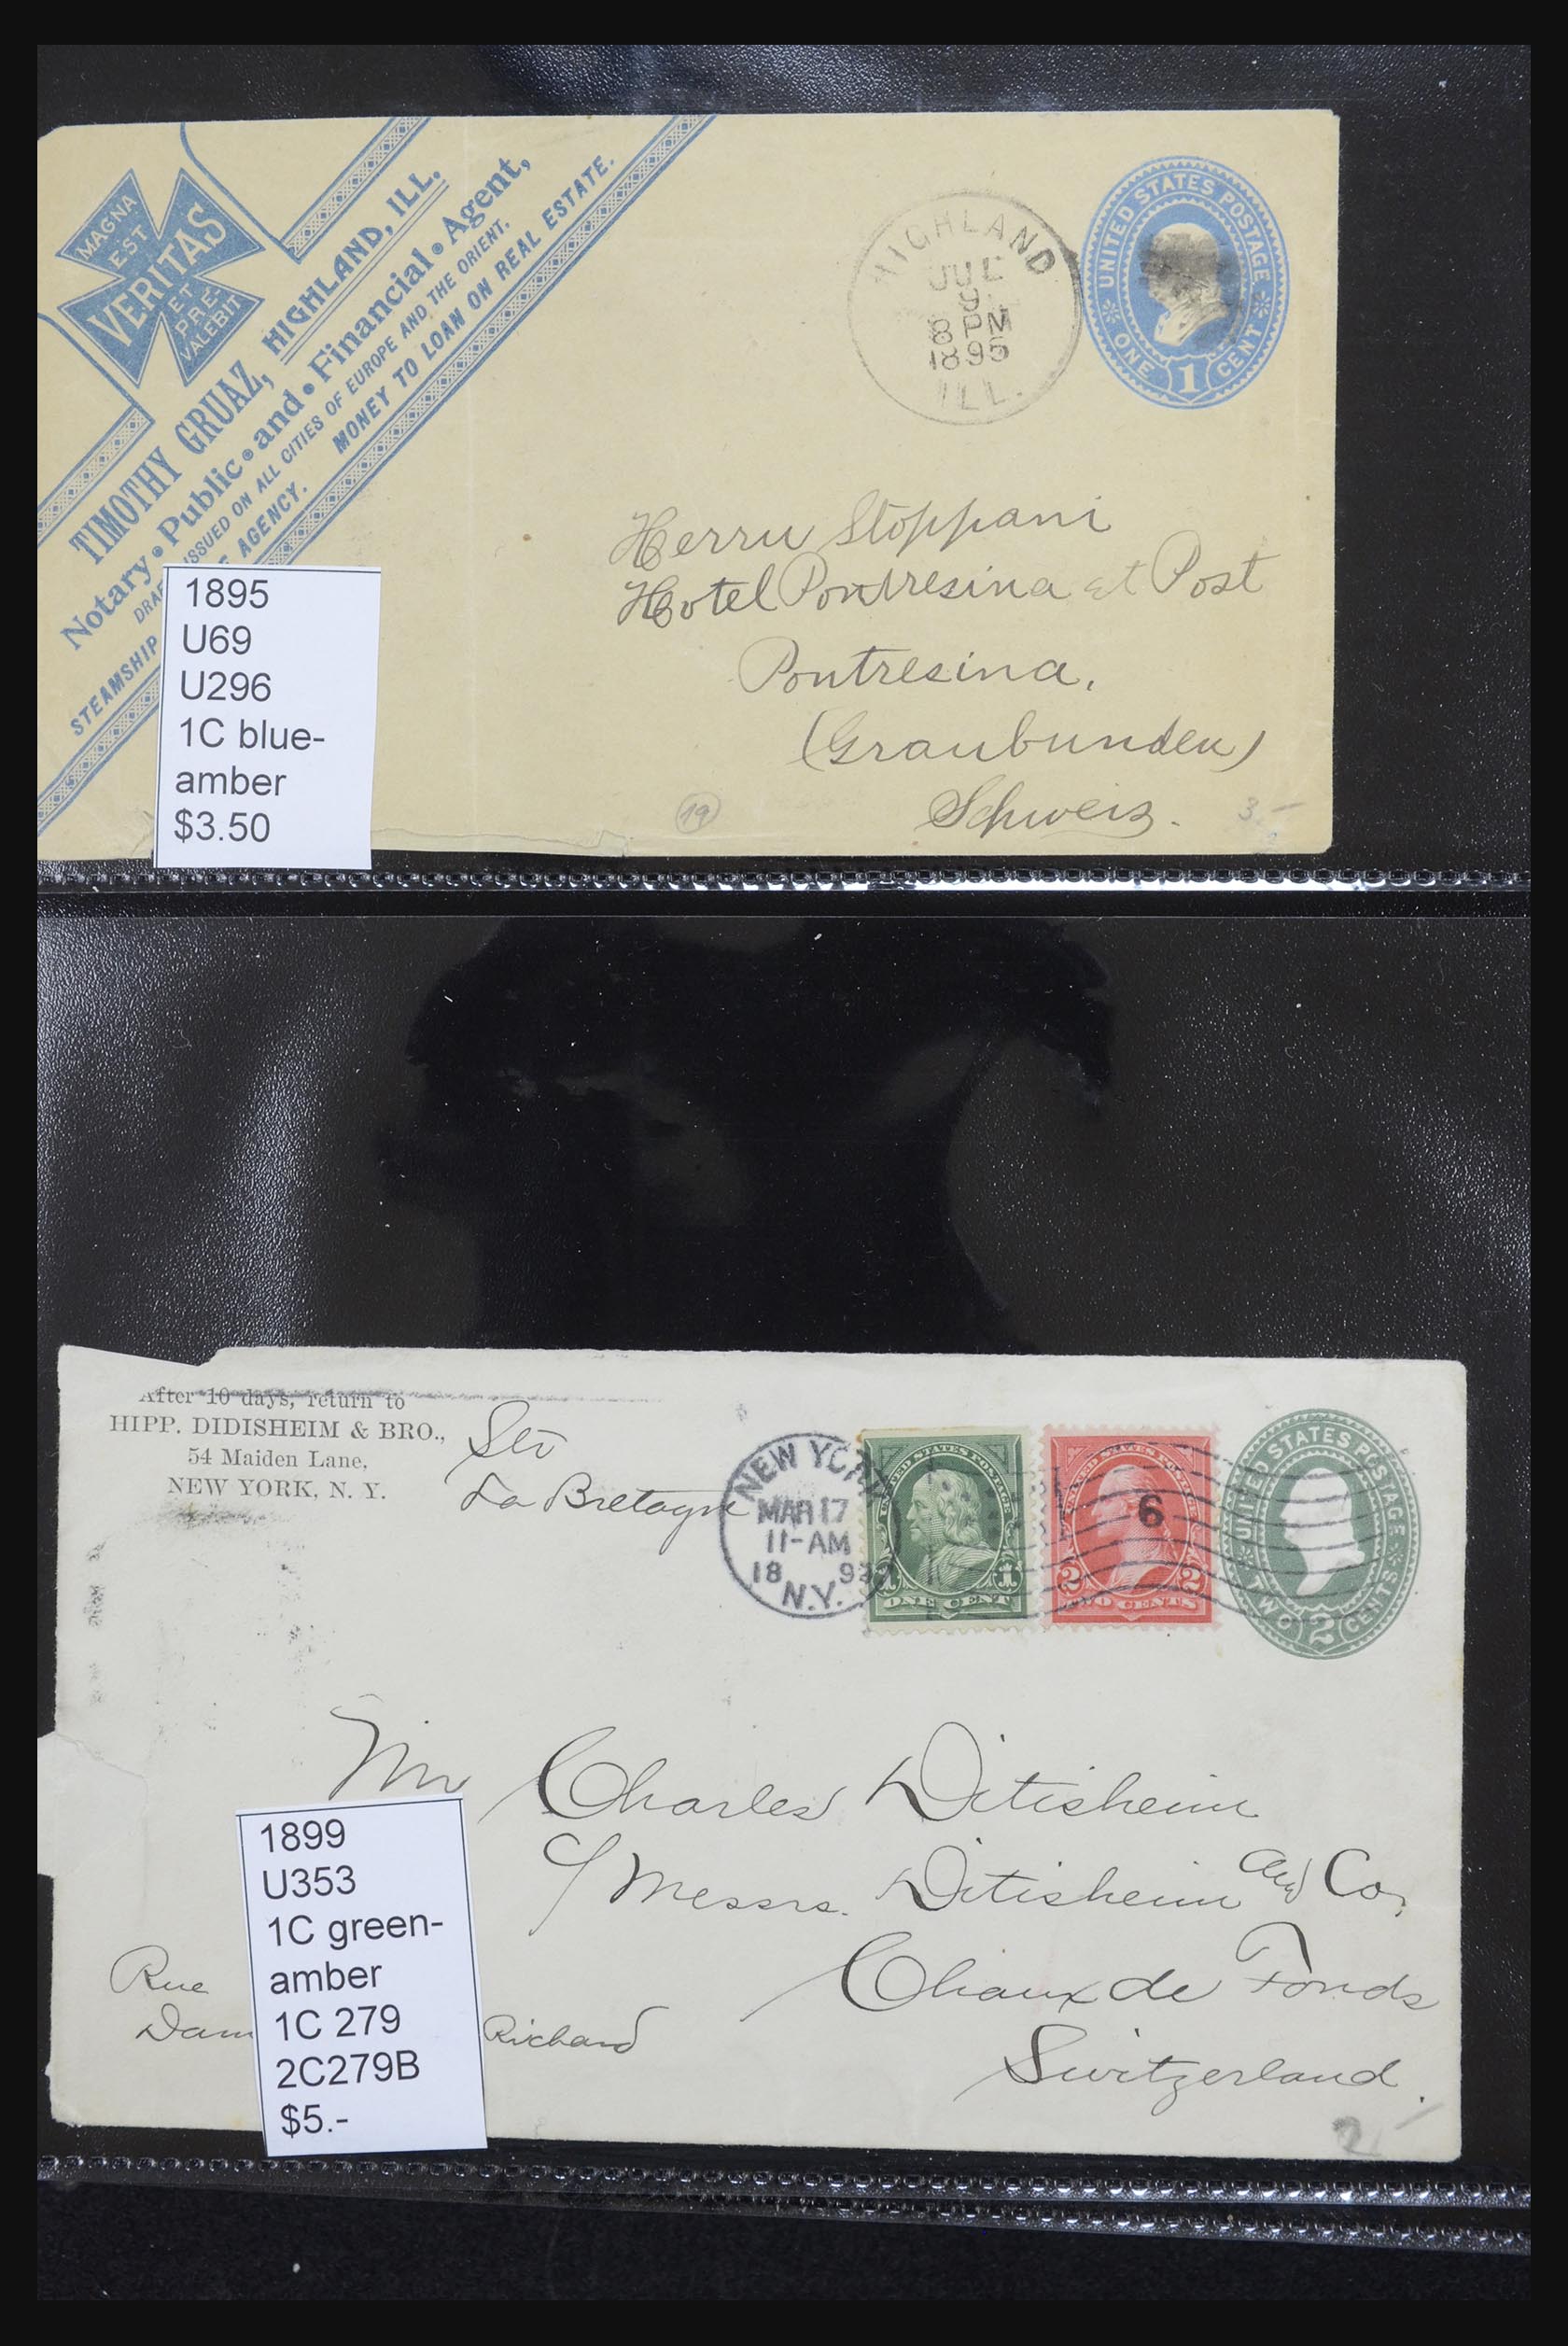 MAGNA
EST
VERITAS
ET
PRE-
VALEBIT
TIMOTHY GRUAZ, HIGHLAND, ILL.
Notary • Public • and • Financial • Agent,
ISSUED ON ALL CITIES OF EUROPE AND THE ORIENT.
STEAMSHIP AGENCY. MONEY TO LOAN ON REAL ESTATE.
HIGHLAND
JUL
9
8 PM
1895
ILL.
UNITED STATES POSTAGE
ONE 1 CENT
Herrn Stoppani
Hotel Pontresina et Post
Pontresina,
(Graubunden)
Schweiz.
19
3.-
1895
U69
U296
1C blue-
amber
$3.50
After 10 days, return to
HIPP. DIDISHEIM & BRO.,
54 Maiden Lane,
NEW YORK, N. Y.
La Bretagne
NEW YORK
MAR 17
11-AM
18 99
N.Y.
UNITED STATES POSTAGE
1 1
ONE CENT
UNITED STATES POSTAGE
6
2 2
TWO CENTS
UNITED STATES POSTAGE
TWO 2 CENTS
Mr Charles Ditisheim
c/ Messrs. Ditisheim and Co,
Chaux de Fonds
Switzerland.
Rue
Richard
1899
U353
1C green-
amber
1C 279
2C279B
$5.-
2.-